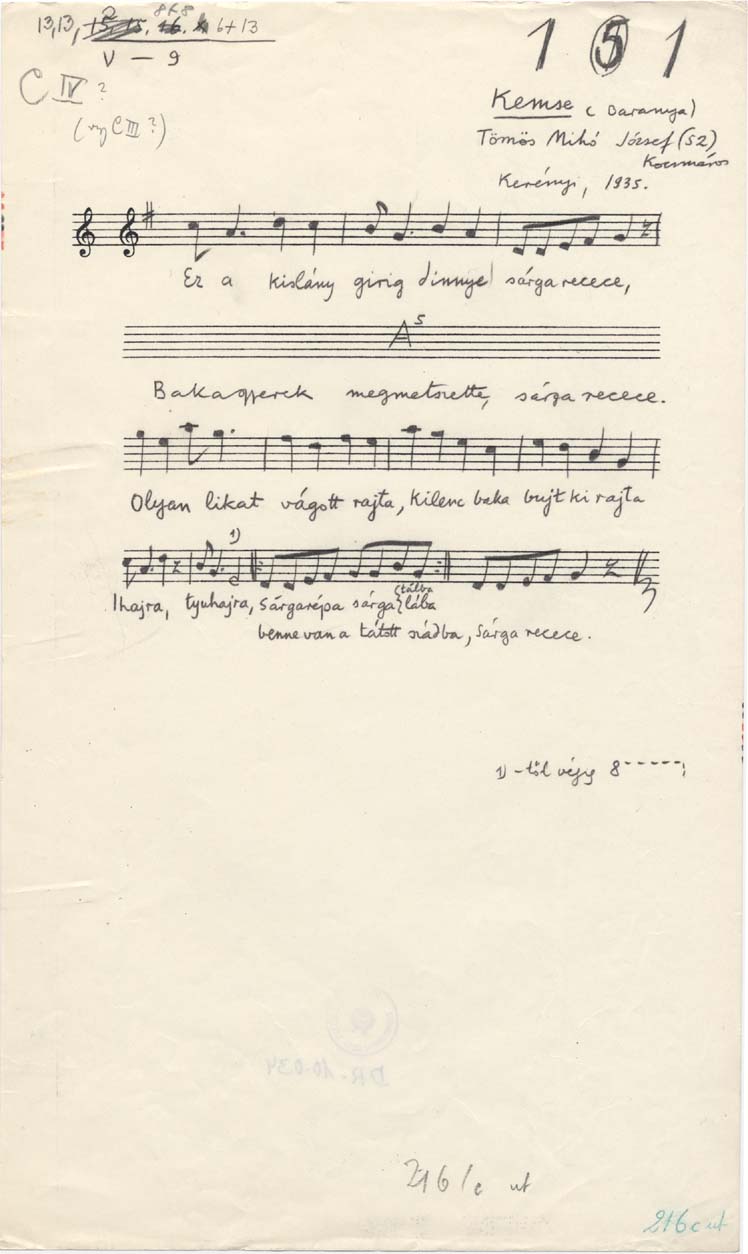 13,13, 8+8 6+13
V — 9
C IV ?
(vagy C III ?)
1 5 1
Kemse (Baranya)
Tömös Mihó József (52)
Kocsmáros
Kerényi, 1935.
Ez a kislány girig dinnye sárga recece,
A5
Bakagyerek megmetszette, sárga recece.
Olyan likat vágott rajta, Kilenc baka bujt ki rajta
1)
Ihajra, tyuhajra, Sárgarépa sárga {tálba
lába
benne van a tátott szádba, Sárga recece.
1) -től végig 8-----;
DR-10.034
216/c ut
216c ut